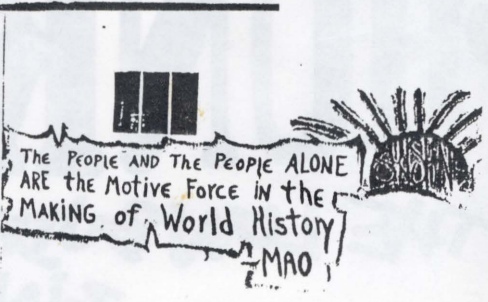 The PEOPlE AND The PEOPlE ALONE
ARE the MOtIVE FORCE IN the
MAKING of World HIStORy
-MAO